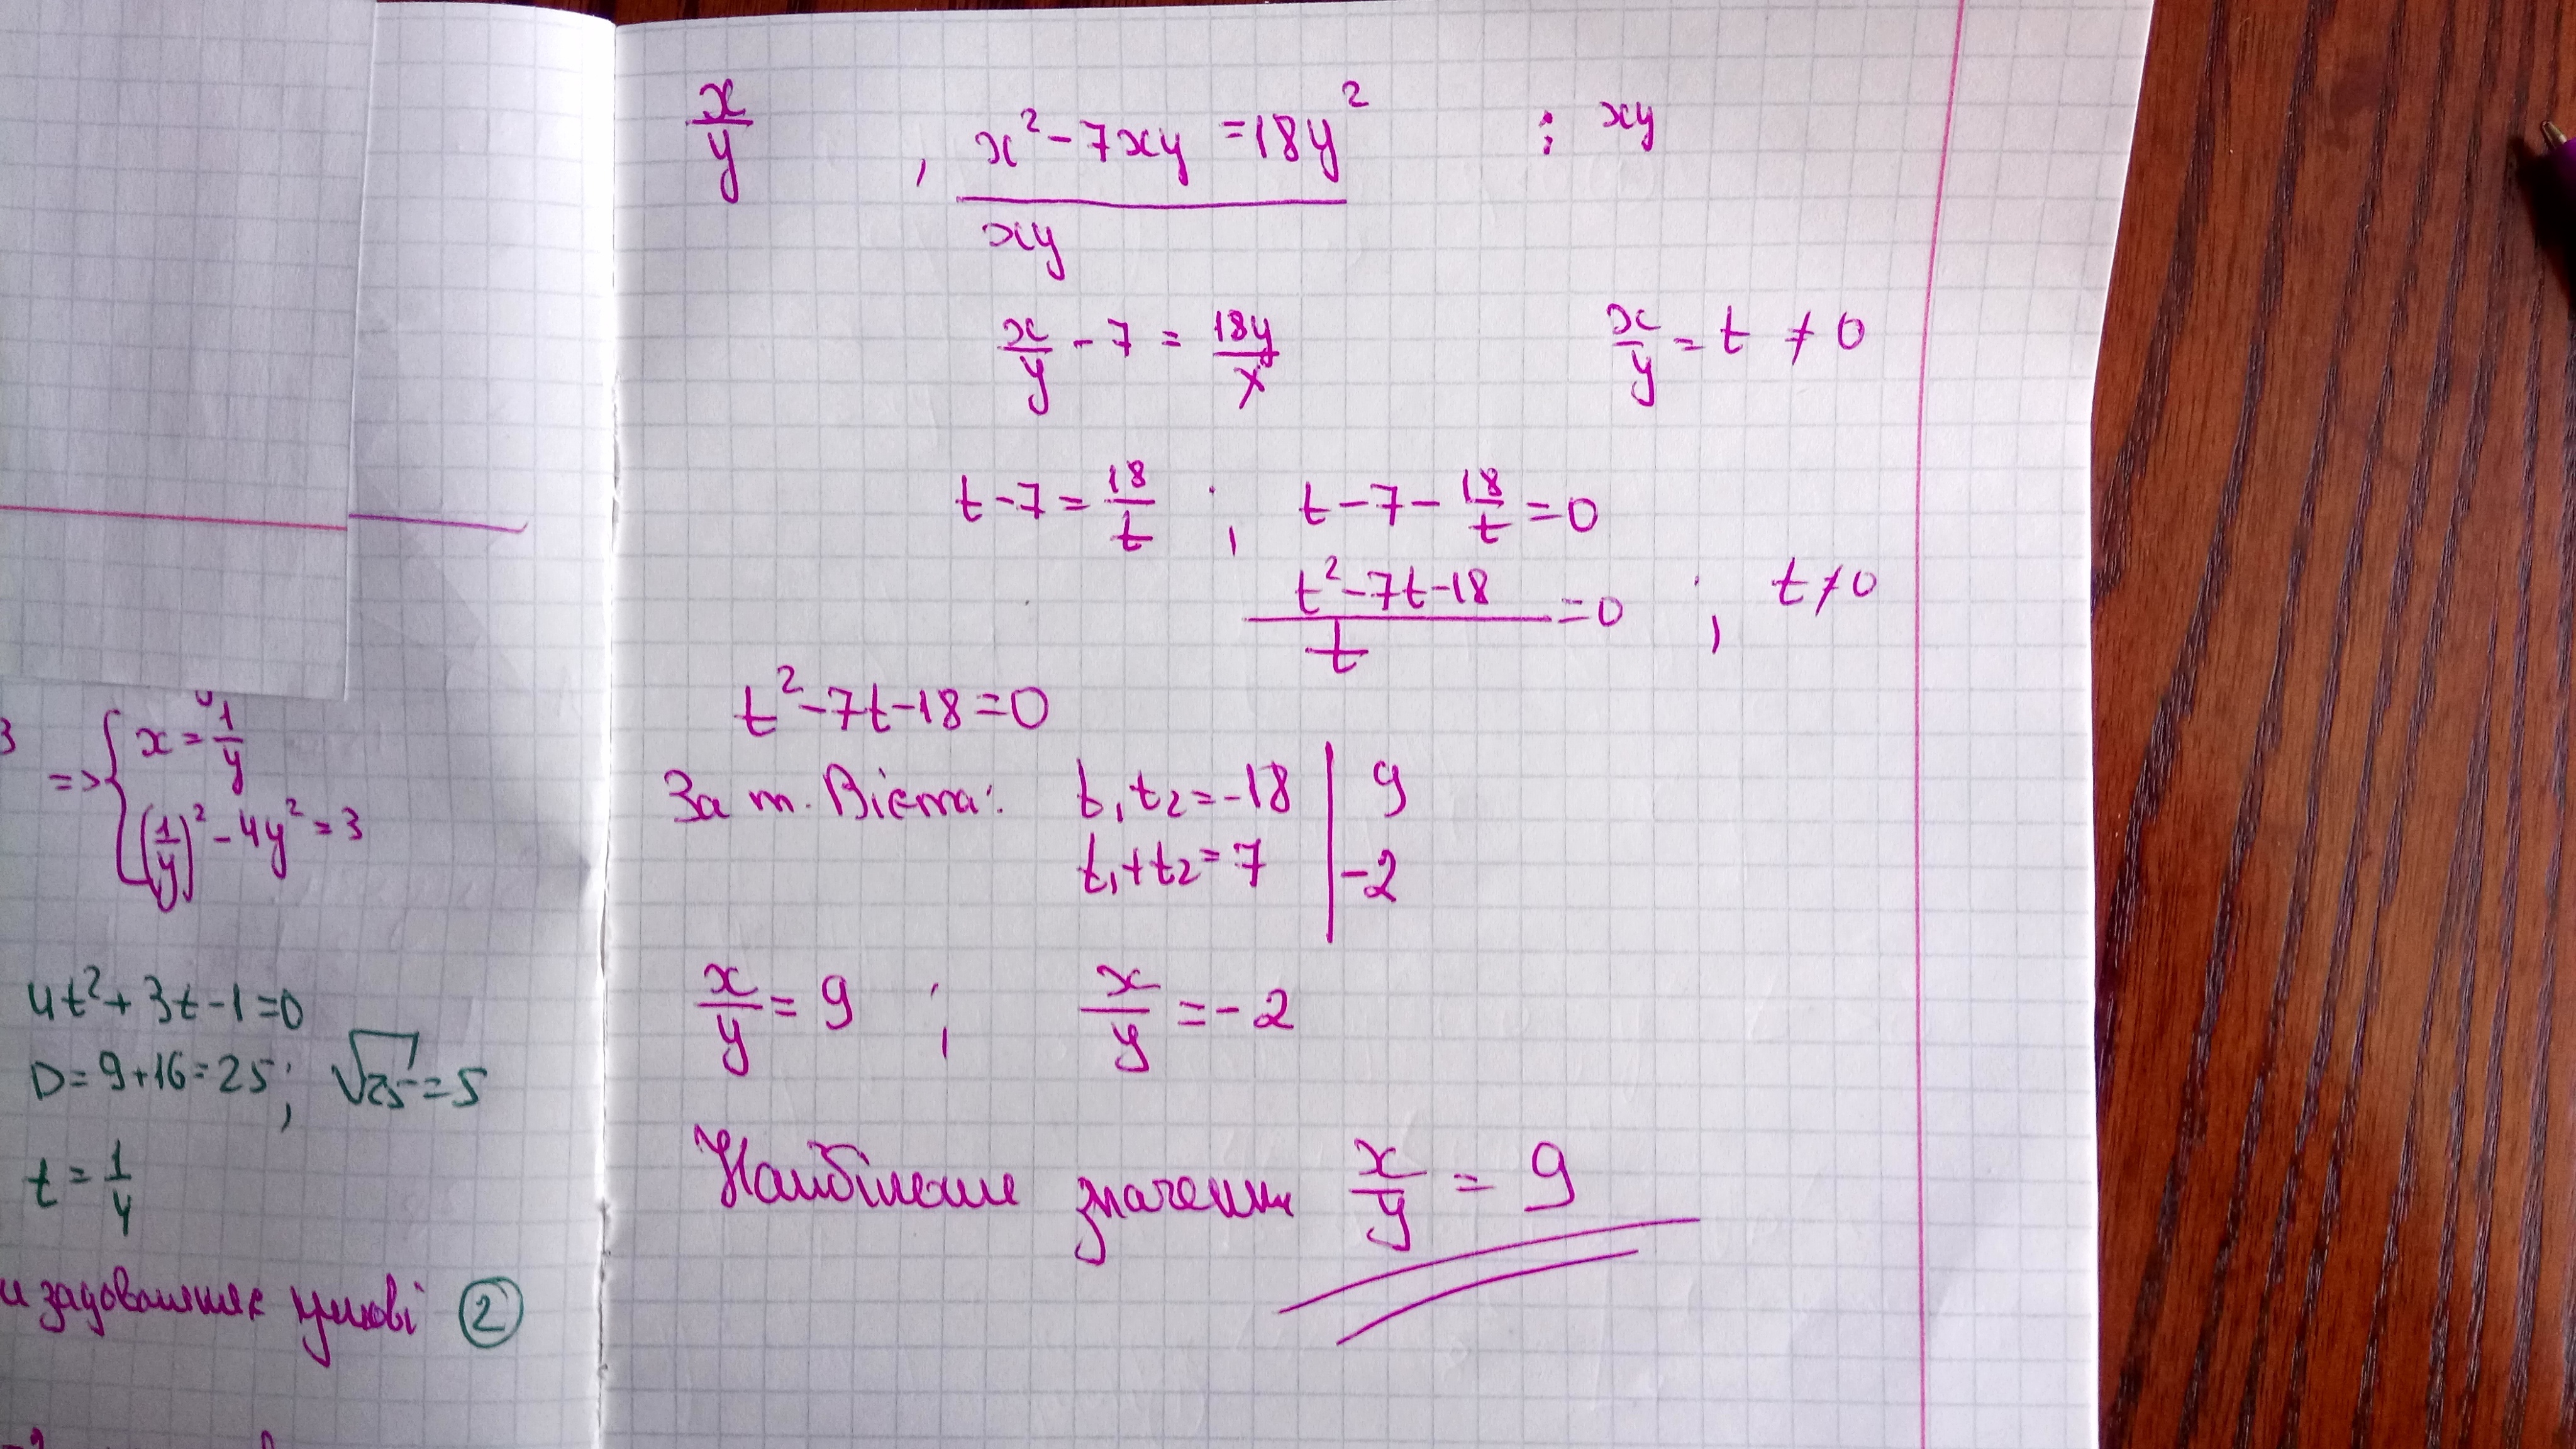 3
=> { x = 1/y
(1/y)² - 4y² = 3
4t² + 3t - 1 = 0
D = 9 + 16 = 25; √25 = 5
t = 1/4
умові ②
x/y , x² - 7xy = 18y² : xy
xy
x/y - 7 = 18y/x x/y = t ≠ 0
t - 7 = 18/t ; t - 7 - 18/t = 0
(t² - 7t - 18)/t = 0 ; t ≠ 0
t² - 7t - 18 = 0
За т. Вієта: t₁t₂ = -18 | 9
t₁ + t₂ = 7 | -2
x/y = 9 ; x/y = -2
Найбільше значення x/y = 9